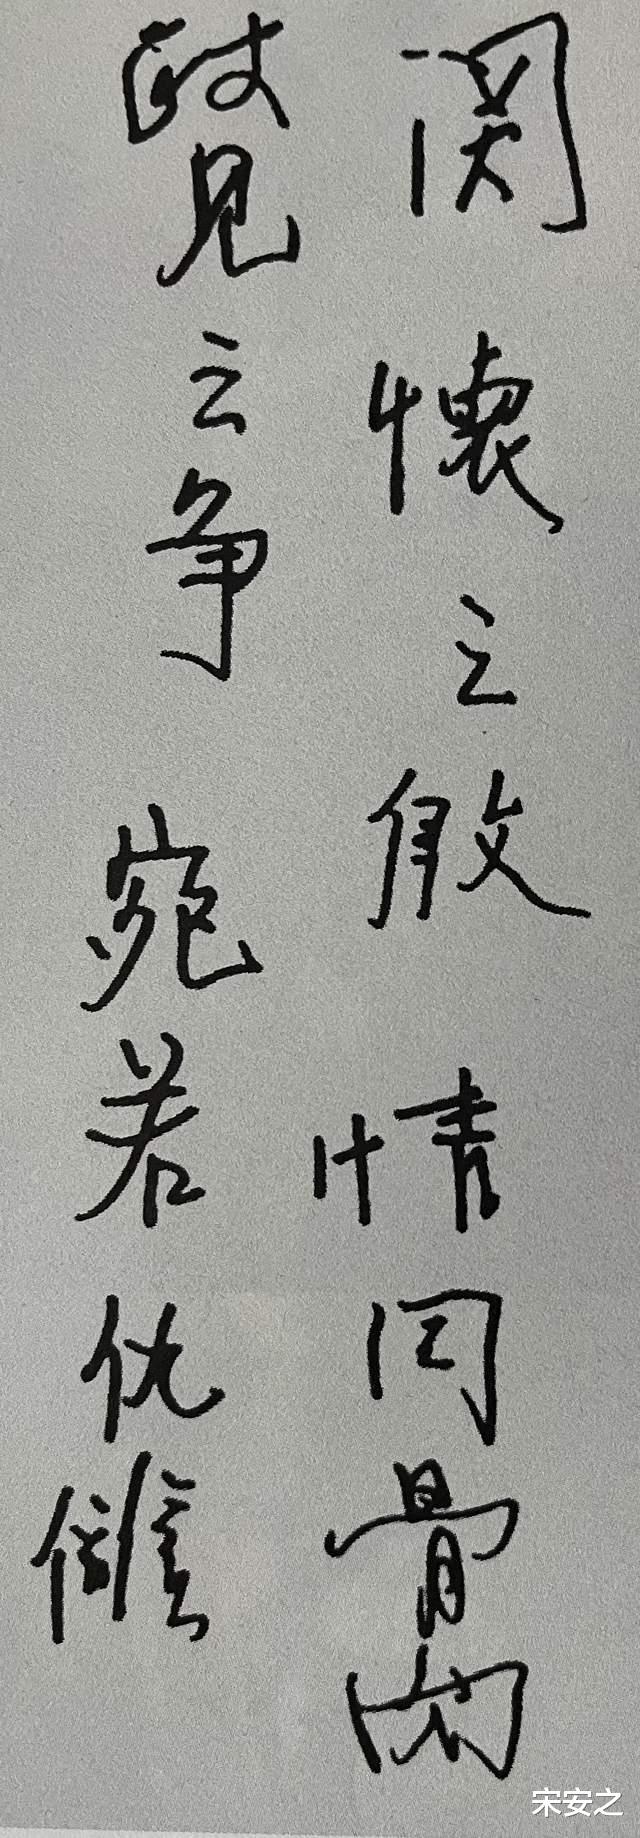 関懷之殷情同骨肉
政見之争宛若仇讎
宋安之